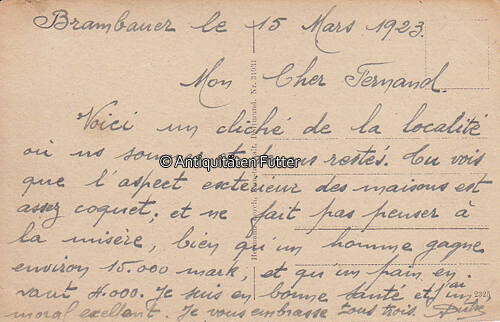 Brambauer le 15 Mars 1923.
Mon Cher Fernand.
Voici un cliché de la localité
où ns sommes et sous restés. Tu vois
que l'aspect exctérieur des maisons est
assez coquet, et ne fait pas penser à
la misère, bien qu'un homme gagne
environ 15.000 mark, et qu'un pain en
vaut 4.000. Je suis en bonne santé et j'ai un
moral exellent. Je vous embrasse tous trois.
© Antiquitäten Fütter
Nr. 31931
2325